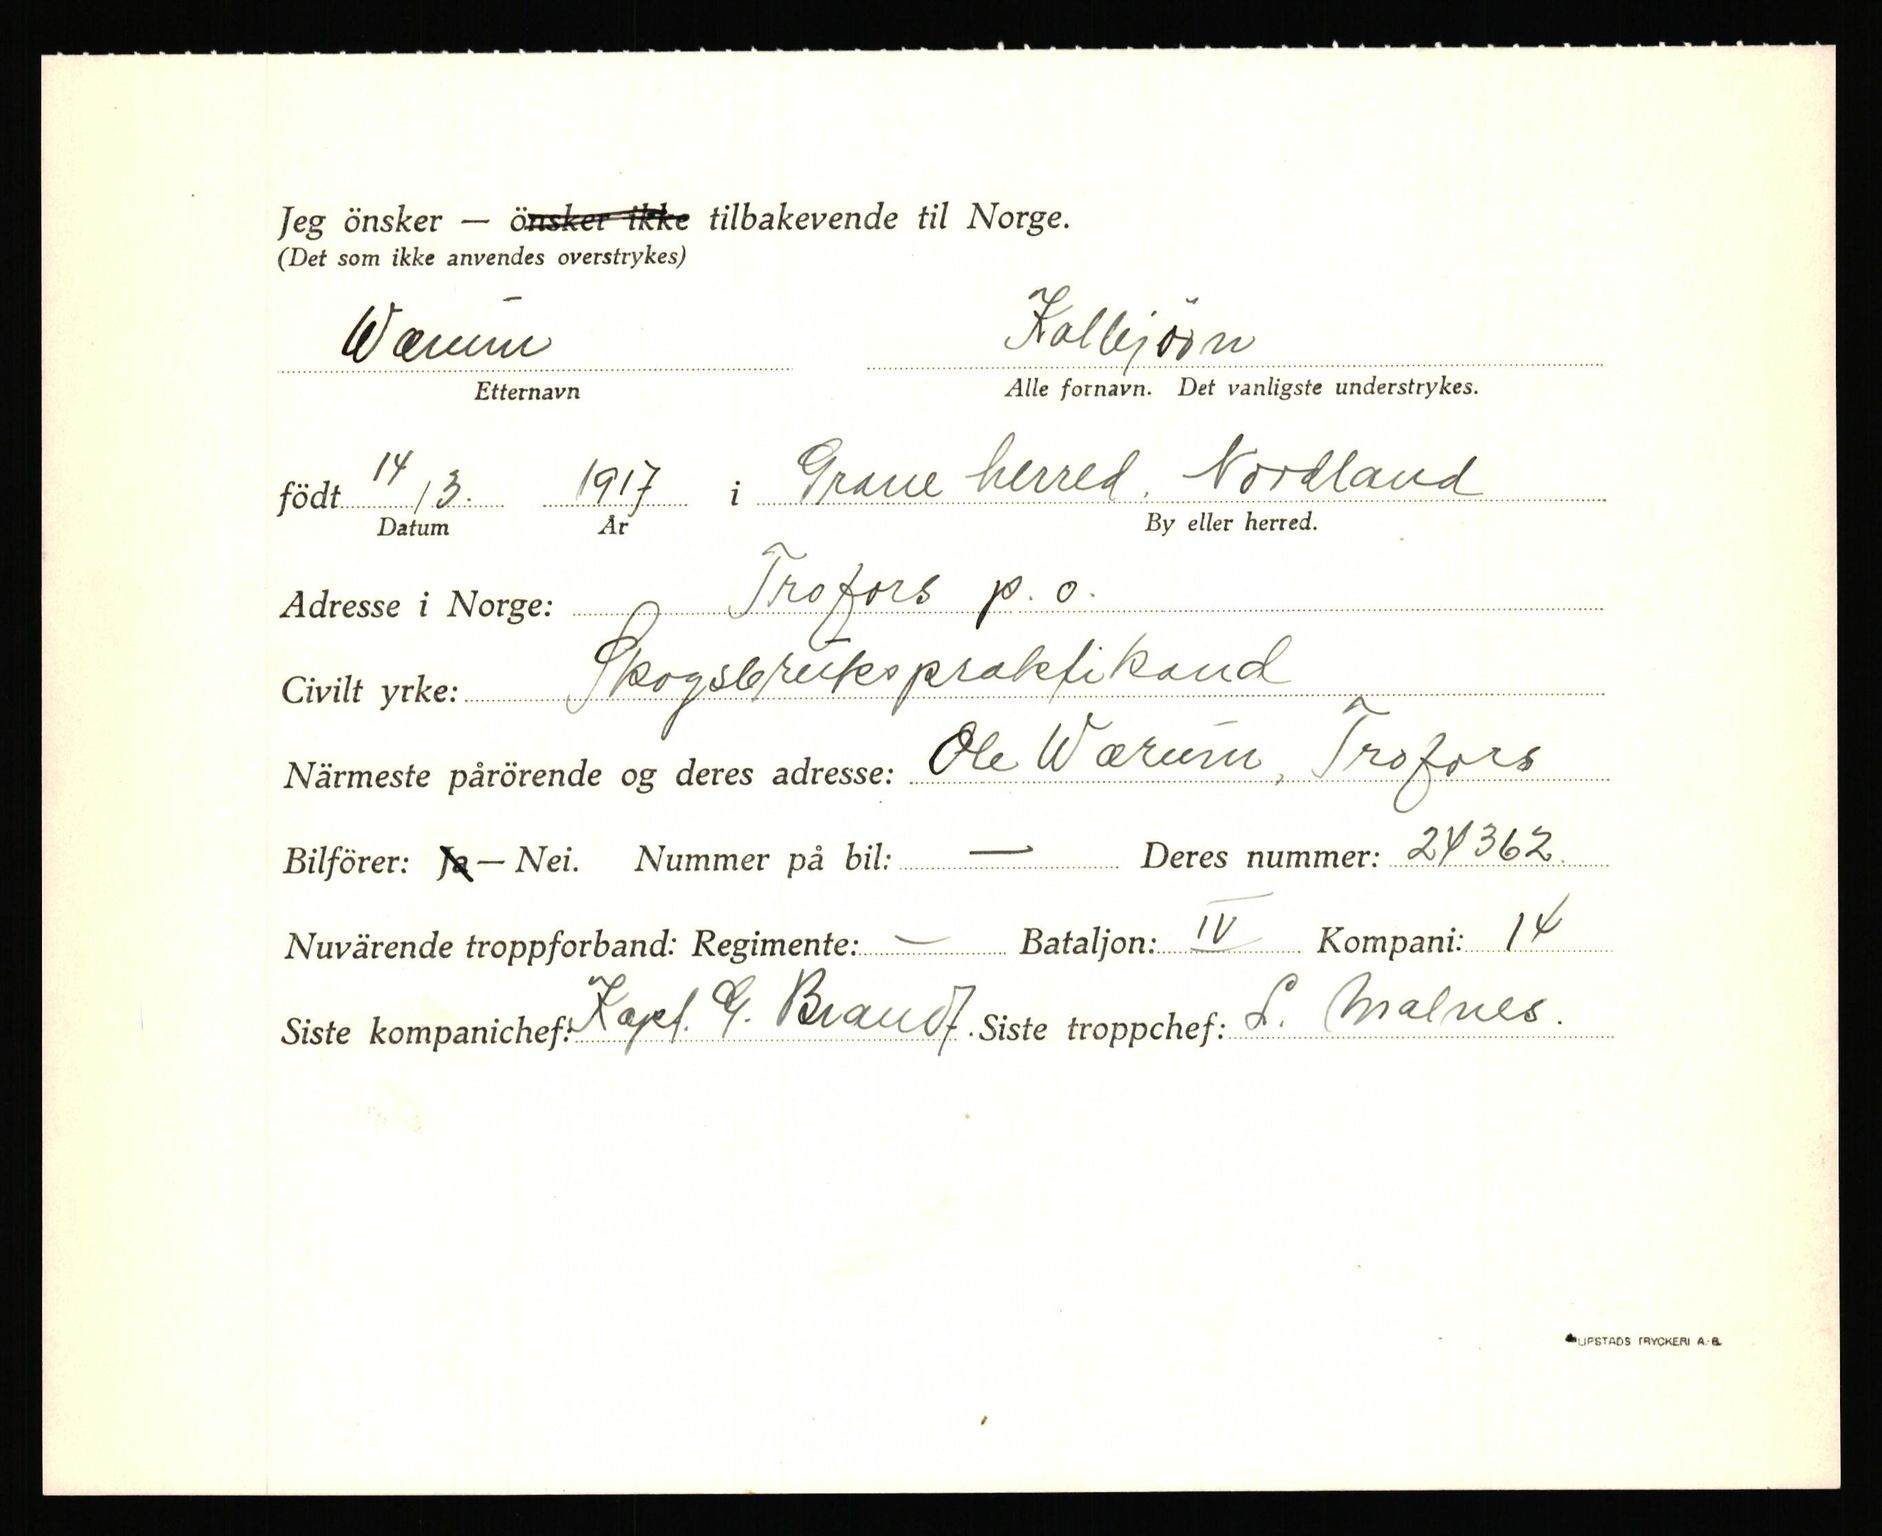 Jeg önsker — önsker ikke tilbakevende til Norge.
(Det som ikke anvendes overstrykes)
Wærum Kolbjörn
Etternavn Alle fornavn. Det vanligste understrykes.
födt 14/3. 1917 i Grane herred, Nordland
Datum År By eller herred.
Adresse i Norge: Trofors p.o.
Civilt yrke: Skogsbrukspraktikand
Närmeste pårörende og deres adresse: Ole Wærum, Trofors
Bilförer: Ja — Nei. Nummer på bil: — Deres nummer: 24362.
Nuvärende troppforband: Regimente: — Bataljon: IV Kompani: 14
Siste kompanichef: Kapt. G. Brandt. Siste troppchef: L. Malnes.
LIPSTADS TRYCKERI A.-B.